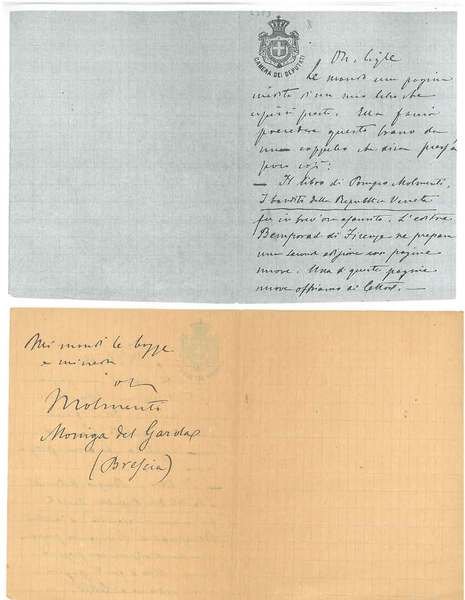 CAMERA DEI DEPUTATI
Le mando una pagina
inedita di un mio libro che
uscirà presto. Ella farà
precedere questo brano da
un cappello che dica presso a
poco così:
— Il libro di Pompeo Molmenti,
I banditi della Repubblica Veneta
fu in brev'ora esaurito. L'editore
Bemporad di Firenze ne prepara
una second edizione con pagine
nuove. Una di queste pagine
nuove offriamo ai lettori. —
Mi mandi le bozze
e mi creda
Molmenti
Moniga del Garda
(Brescia)